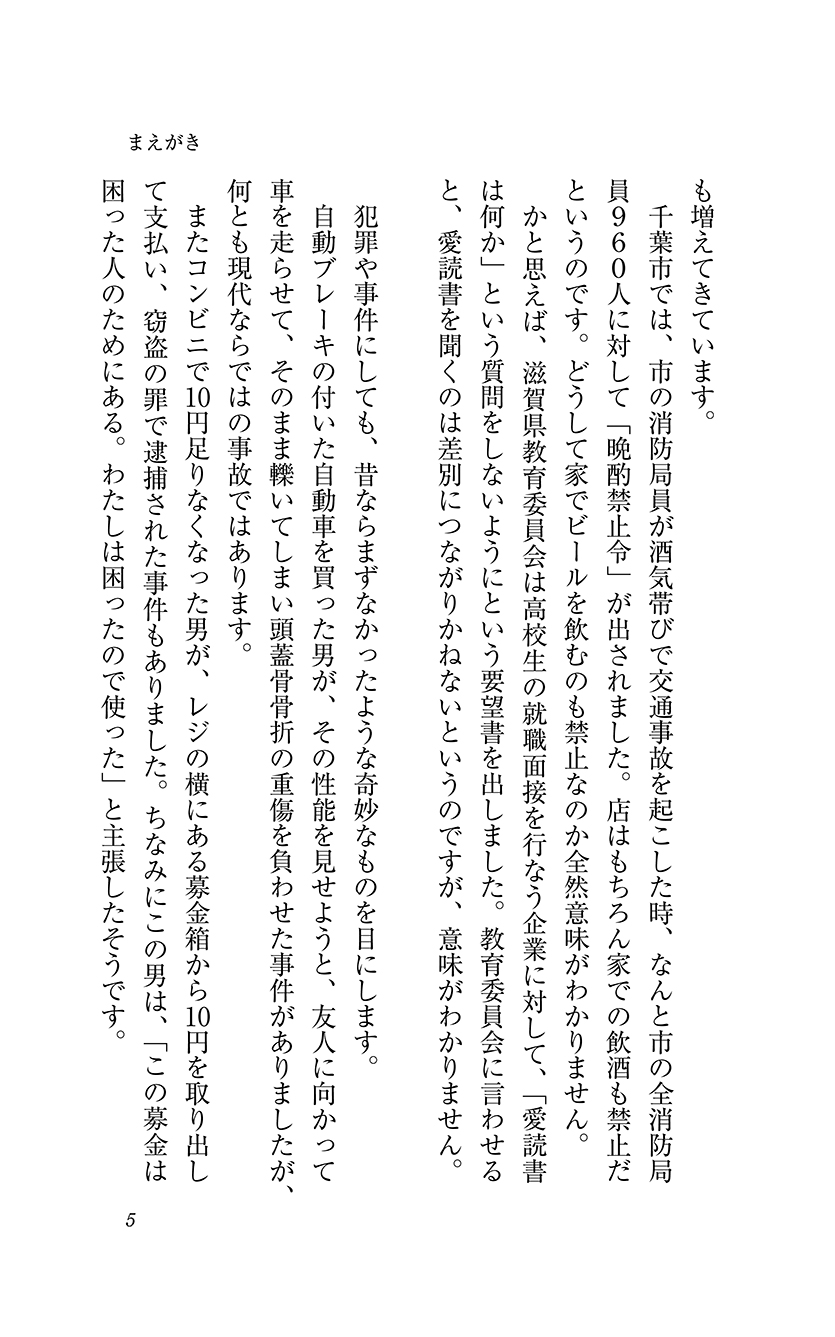 まえがき
も増えてきています。
千葉市では、市の消防局員が酒気帯びで交通事故を起こした時、なんと市の全消防局
員９６０人に対して「晩酌禁止令」が出されました。店はもちろん家での飲酒も禁止だ
というのです。どうして家でビールを飲むのも禁止なのか全然意味がわかりません。
かと思えば、滋賀県教育委員会は高校生の就職面接を行なう企業に対して、「愛読書
は何か」という質問をしないようにという要望書を出しました。教育委員会に言わせる
と、愛読書を聞くのは差別につながりかねないというのですが、意味がわかりません。
犯罪や事件にしても、昔ならまずなかったような奇妙なものを目にします。
自動ブレーキの付いた自動車を買った男が、その性能を見せようと、友人に向かって
車を走らせて、そのまま轢いてしまい頭蓋骨骨折の重傷を負わせた事件がありましたが、
何とも現代ならではの事故ではあります。
またコンビニで10円足りなくなった男が、レジの横にある募金箱から10円を取り出し
て支払い、窃盗の罪で逮捕された事件もありました。ちなみにこの男は、「この募金は
困った人のためにある。わたしは困ったので使った」と主張したそうです。
5